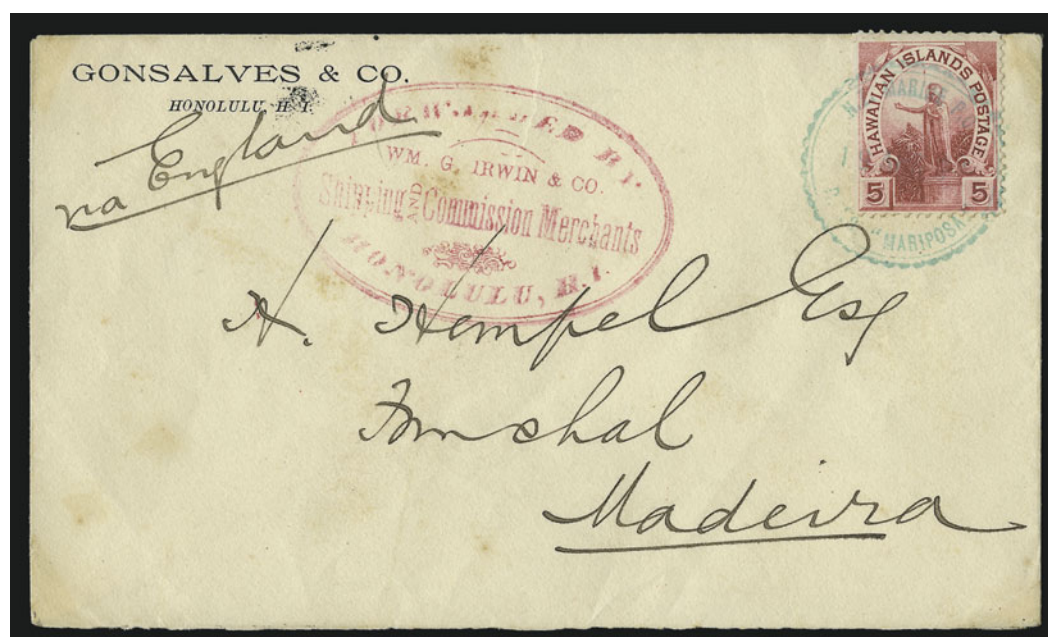 GONSALVES & CO.
HONOLULU, H. I.
via England
FORWARDED BY
WM. G. IRWIN & CO.
Shipping AND Commission Merchants
HONOLULU, H. I.
HAWAIIAN ISLANDS POSTAGE
5 5
"MARIPOSA"
H. Hempel Esq
Funchal
Madeira